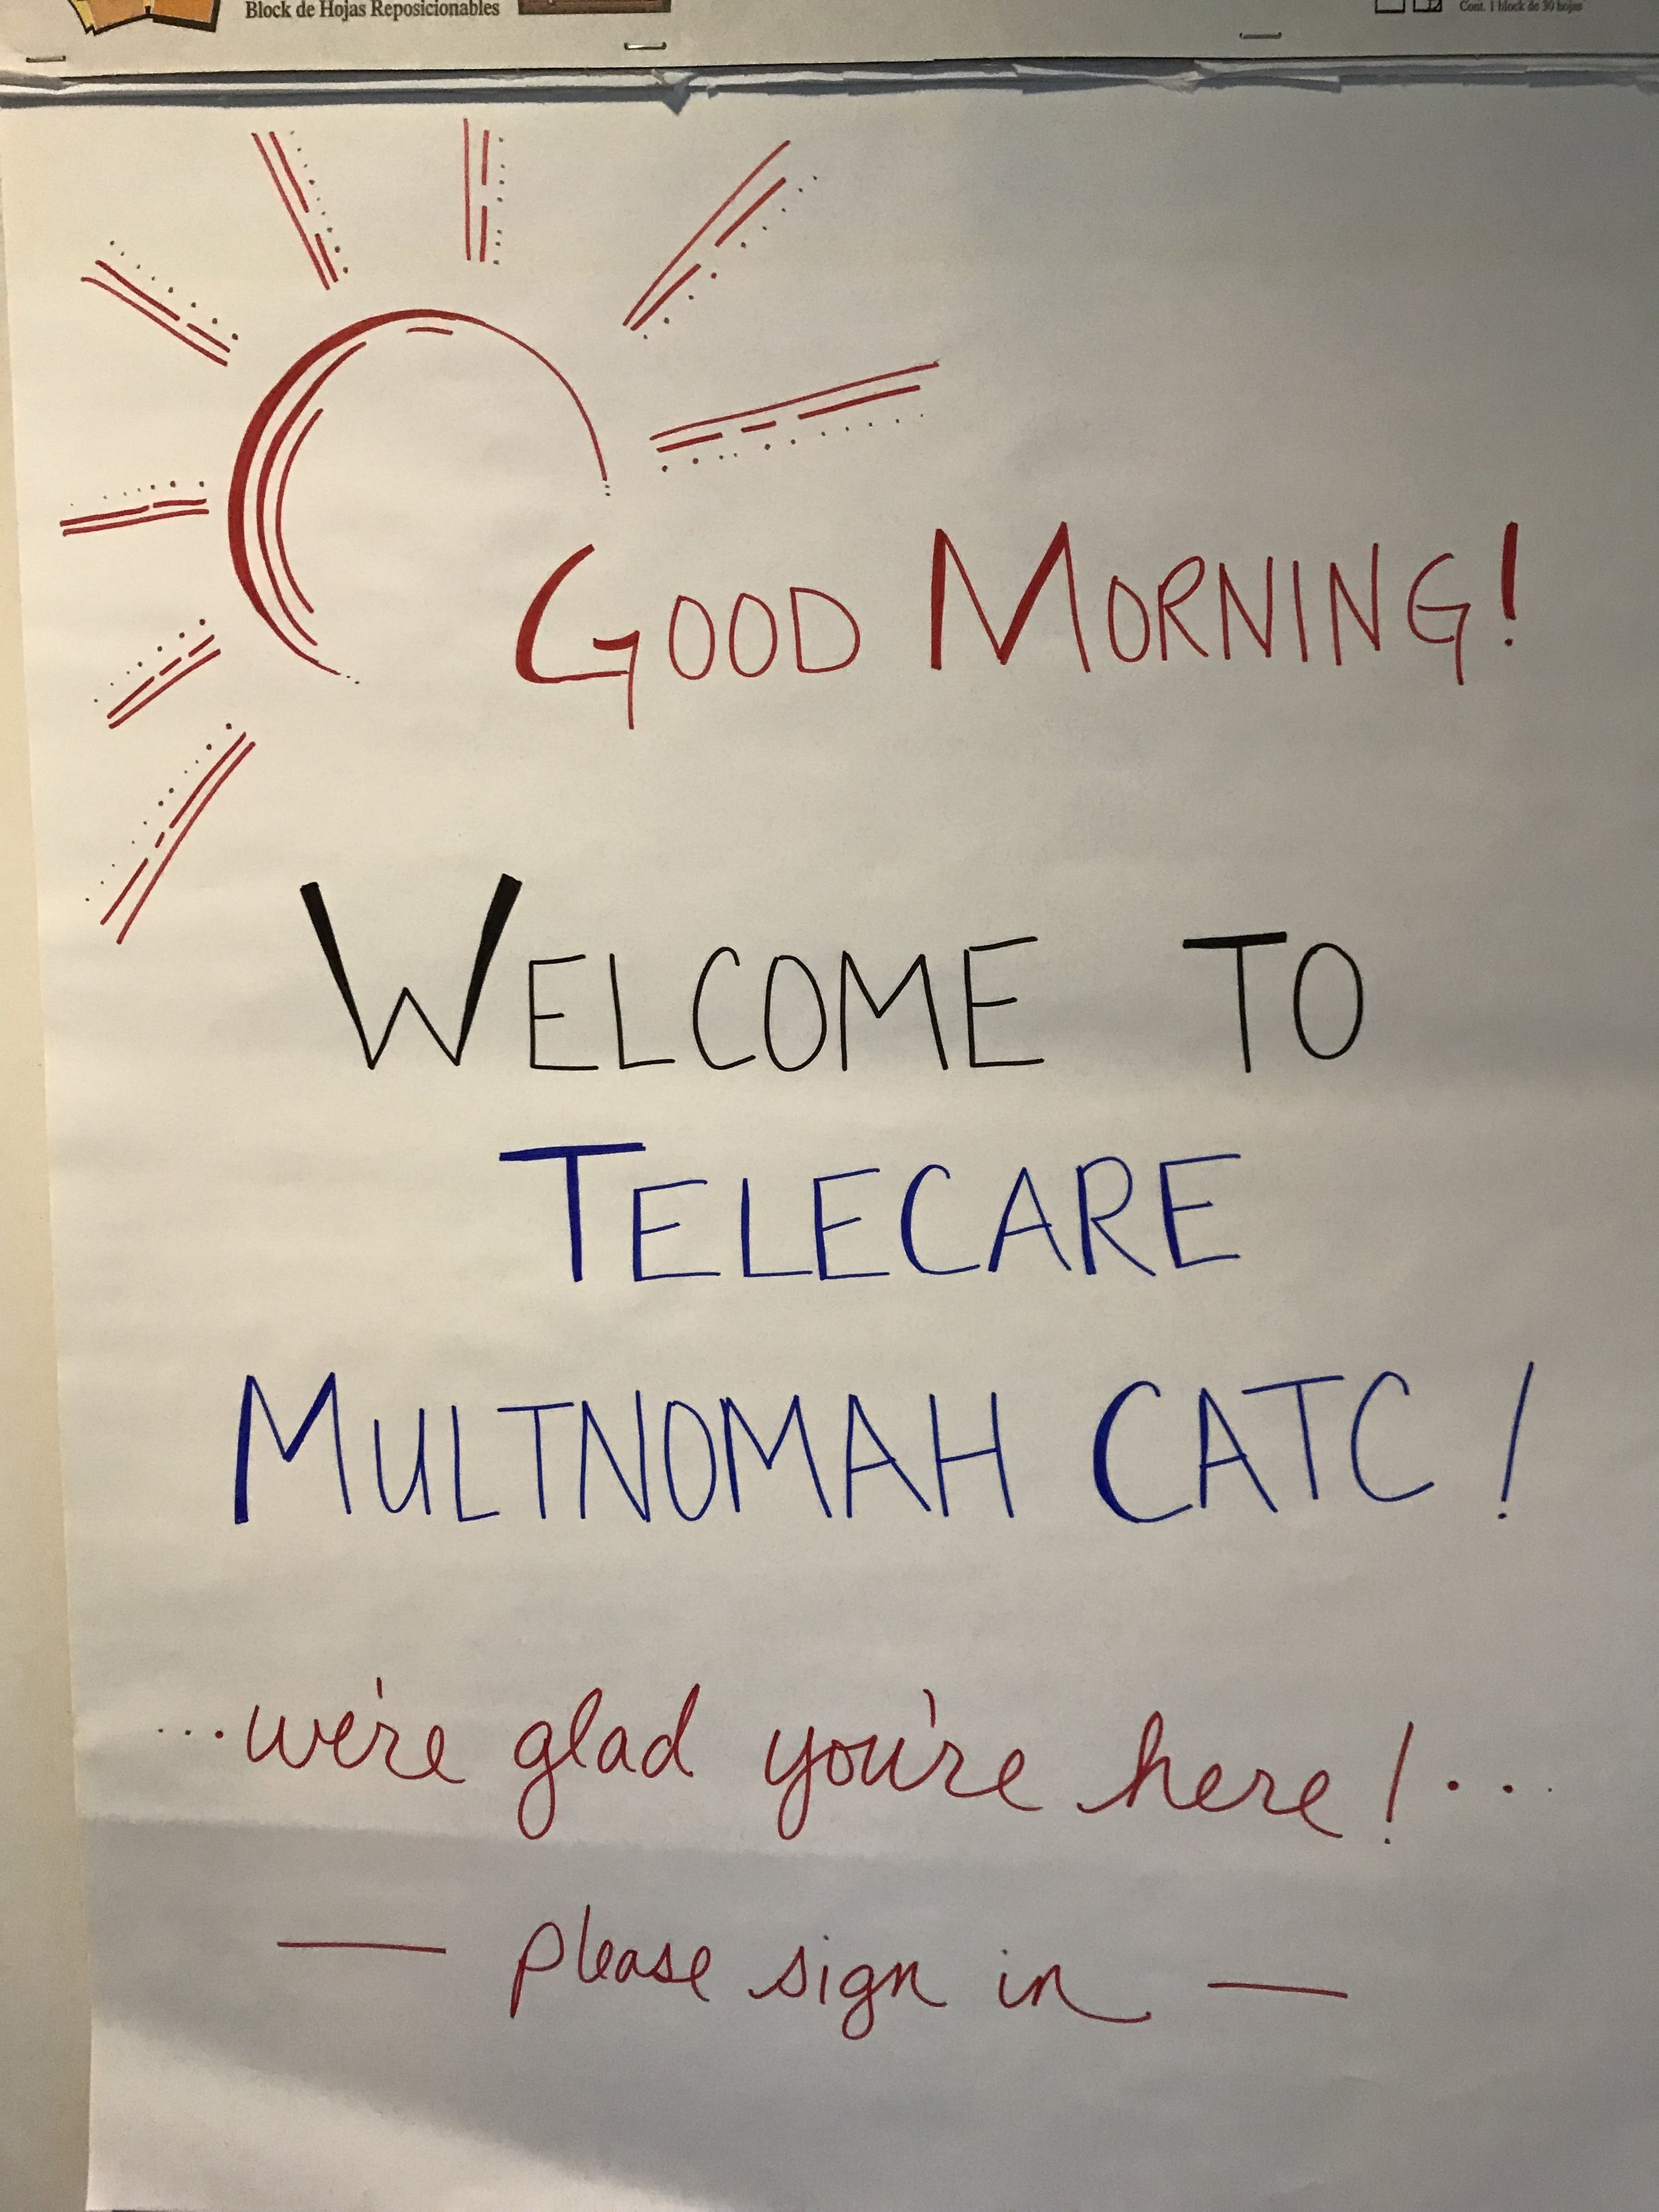 Block de Hojas Reposicionables
Cont. 1 block de 30 hojas
GOOD MORNING!
WELCOME TO
TELECARE
MULTNOMAH CATC!
...we're glad you're here!...
— please sign in —